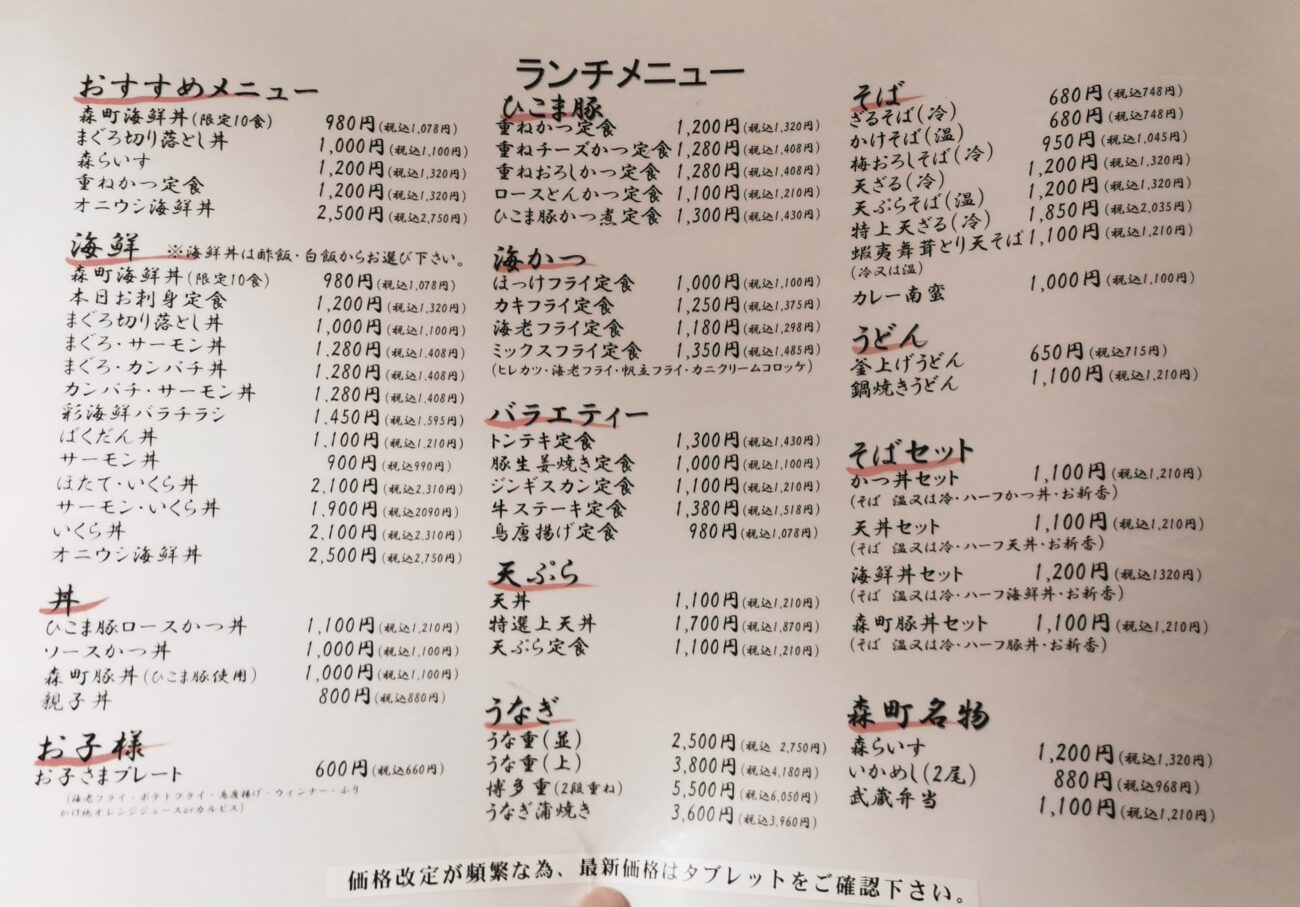 ランチメニュー
おすすめメニュー
森町海鮮丼(限定10食) 980円(税込1,078円)
まぐろ切り落とし丼 1,000円(税込1,100円)
森らいす 1,200円(税込1,320円)
重ねかつ定食 1,200円(税込1,320円)
オニウシ海鮮丼 2,500円(税込2,750円)
海鮮 ※海鮮丼は酢飯・白飯からお選び下さい。
森町海鮮丼(限定10食) 980円(税込1,078円)
本日お刺身定食 1,200円(税込1,320円)
まぐろ切り落とし丼 1,000円(税込1,100円)
まぐろ・サーモン丼 1.280円(税込1.408円)
まぐろ・カンパチ丼 1.280円(税込1.408円)
カンパチ・サーモン丼 1.280円(税込1.408円)
彩海鮮バラチラシ 1.450円(税込1.595円)
ばくだん丼 1,100円(税込1,210円)
サーモン丼 900円(税込990円)
ほたて・いくら丼 2.100円(税込2.310円)
サーモン・いくら丼 1.900円(税込2090円)
いくら丼 2,100円(税込2,310円)
オニウシ海鮮丼 2,500円(税込2,750円)
丼
ひこま豚ロースかつ丼 1,100円(税込1,210円)
ソースかつ丼 1,000円(税込1,100円)
森町豚丼(ひこま豚使用) 1,000円(税込1,100円)
親子丼 800円(税込880円)
お子様
お子さまプレート 600円(税込660円)
(海老フライ・ポテトフライ・鳥唐揚げ・ウィンナー・ふり
かけ他オレンジジュースorカルピス)
ひこま豚
重ねかつ定食 1,200円(税込1,320円)
重ねチーズかつ定食 1,280円(税込1,408円)
重ねおろしかつ定食 1,280円(税込1,408円)
ロースとんかつ定食 1,100円(税込1,210円)
ひこま豚かつ煮定食 1,300円(税込1,430円)
海かつ
ほっけフライ定食 1,000円(税込1,100円)
カキフライ定食 1,250円(税込1,375円)
海老フライ定食 1,180円(税込1,298円)
ミックスフライ定食 1,350円(税込1,485円)
(ヒレカツ・海老フライ・帆立フライ・カニクリームコロッケ)
バラエティー
トンテキ定食 1,300円(税込1,430円)
豚生姜焼き定食 1,000円(税込1,100円)
ジンギスカン定食 1,100円(税込1,210円)
牛ステーキ定食 1,380円(税込1,518円)
鳥唐揚げ定食 980円(税込1,078円)
天ぷら
天丼 1,100円(税込1,210円)
特選上天丼 1,700円(税込1,870円)
天ぷら定食 1,100円(税込1,210円)
うなぎ
うな重(並) 2,500円(税込 2,750円)
うな重(上) 3,800円(税込4,180円)
博多重(2段重ね) 5,500円(税込6,050円)
うなぎ蒲焼き 3,600円(税込3,960円)
そば
ざるそば(冷) 680円(税込748円)
かけそば(温) 680円(税込748円)
梅おろしそば(冷) 950円(税込1,045円)
天ざる(冷) 1,200円(税込1,320円)
天ぷらそば(温) 1,200円(税込1,320円)
特上天ざる(冷) 1,850円(税込2,035円)
蝦夷舞茸とり天そば 1,100円(税込1,210円)
(冷又は温)
カレー南蛮 1,000円(税込1,100円)
うどん
釜上げうどん 650円(税込715円)
鍋焼きうどん 1,100円(税込1,210円)
そばセット
かつ丼セット 1,100円(税込1,210円)
(そば 温又は冷・ハーフかつ丼・お新香)
天丼セット 1,100円(税込1,210円)
(そば 温又は冷・ハーフ天丼・お新香)
海鮮丼セット 1,200円(税込1320円)
(そば 温又は冷・ハーフ海鮮丼・お新香)
森町豚丼セット 1,100円(税込1,210円)
(そば 温又は冷・ハーフ豚丼・お新香)
森町名物
森らいす 1,200円(税込1,320円)
いかめし(2尾) 880円(税込968円)
武蔵弁当 1,100円(税込1,210円)
価格改定が頻繁な為、最新価格はタブレットをご確認下さい。